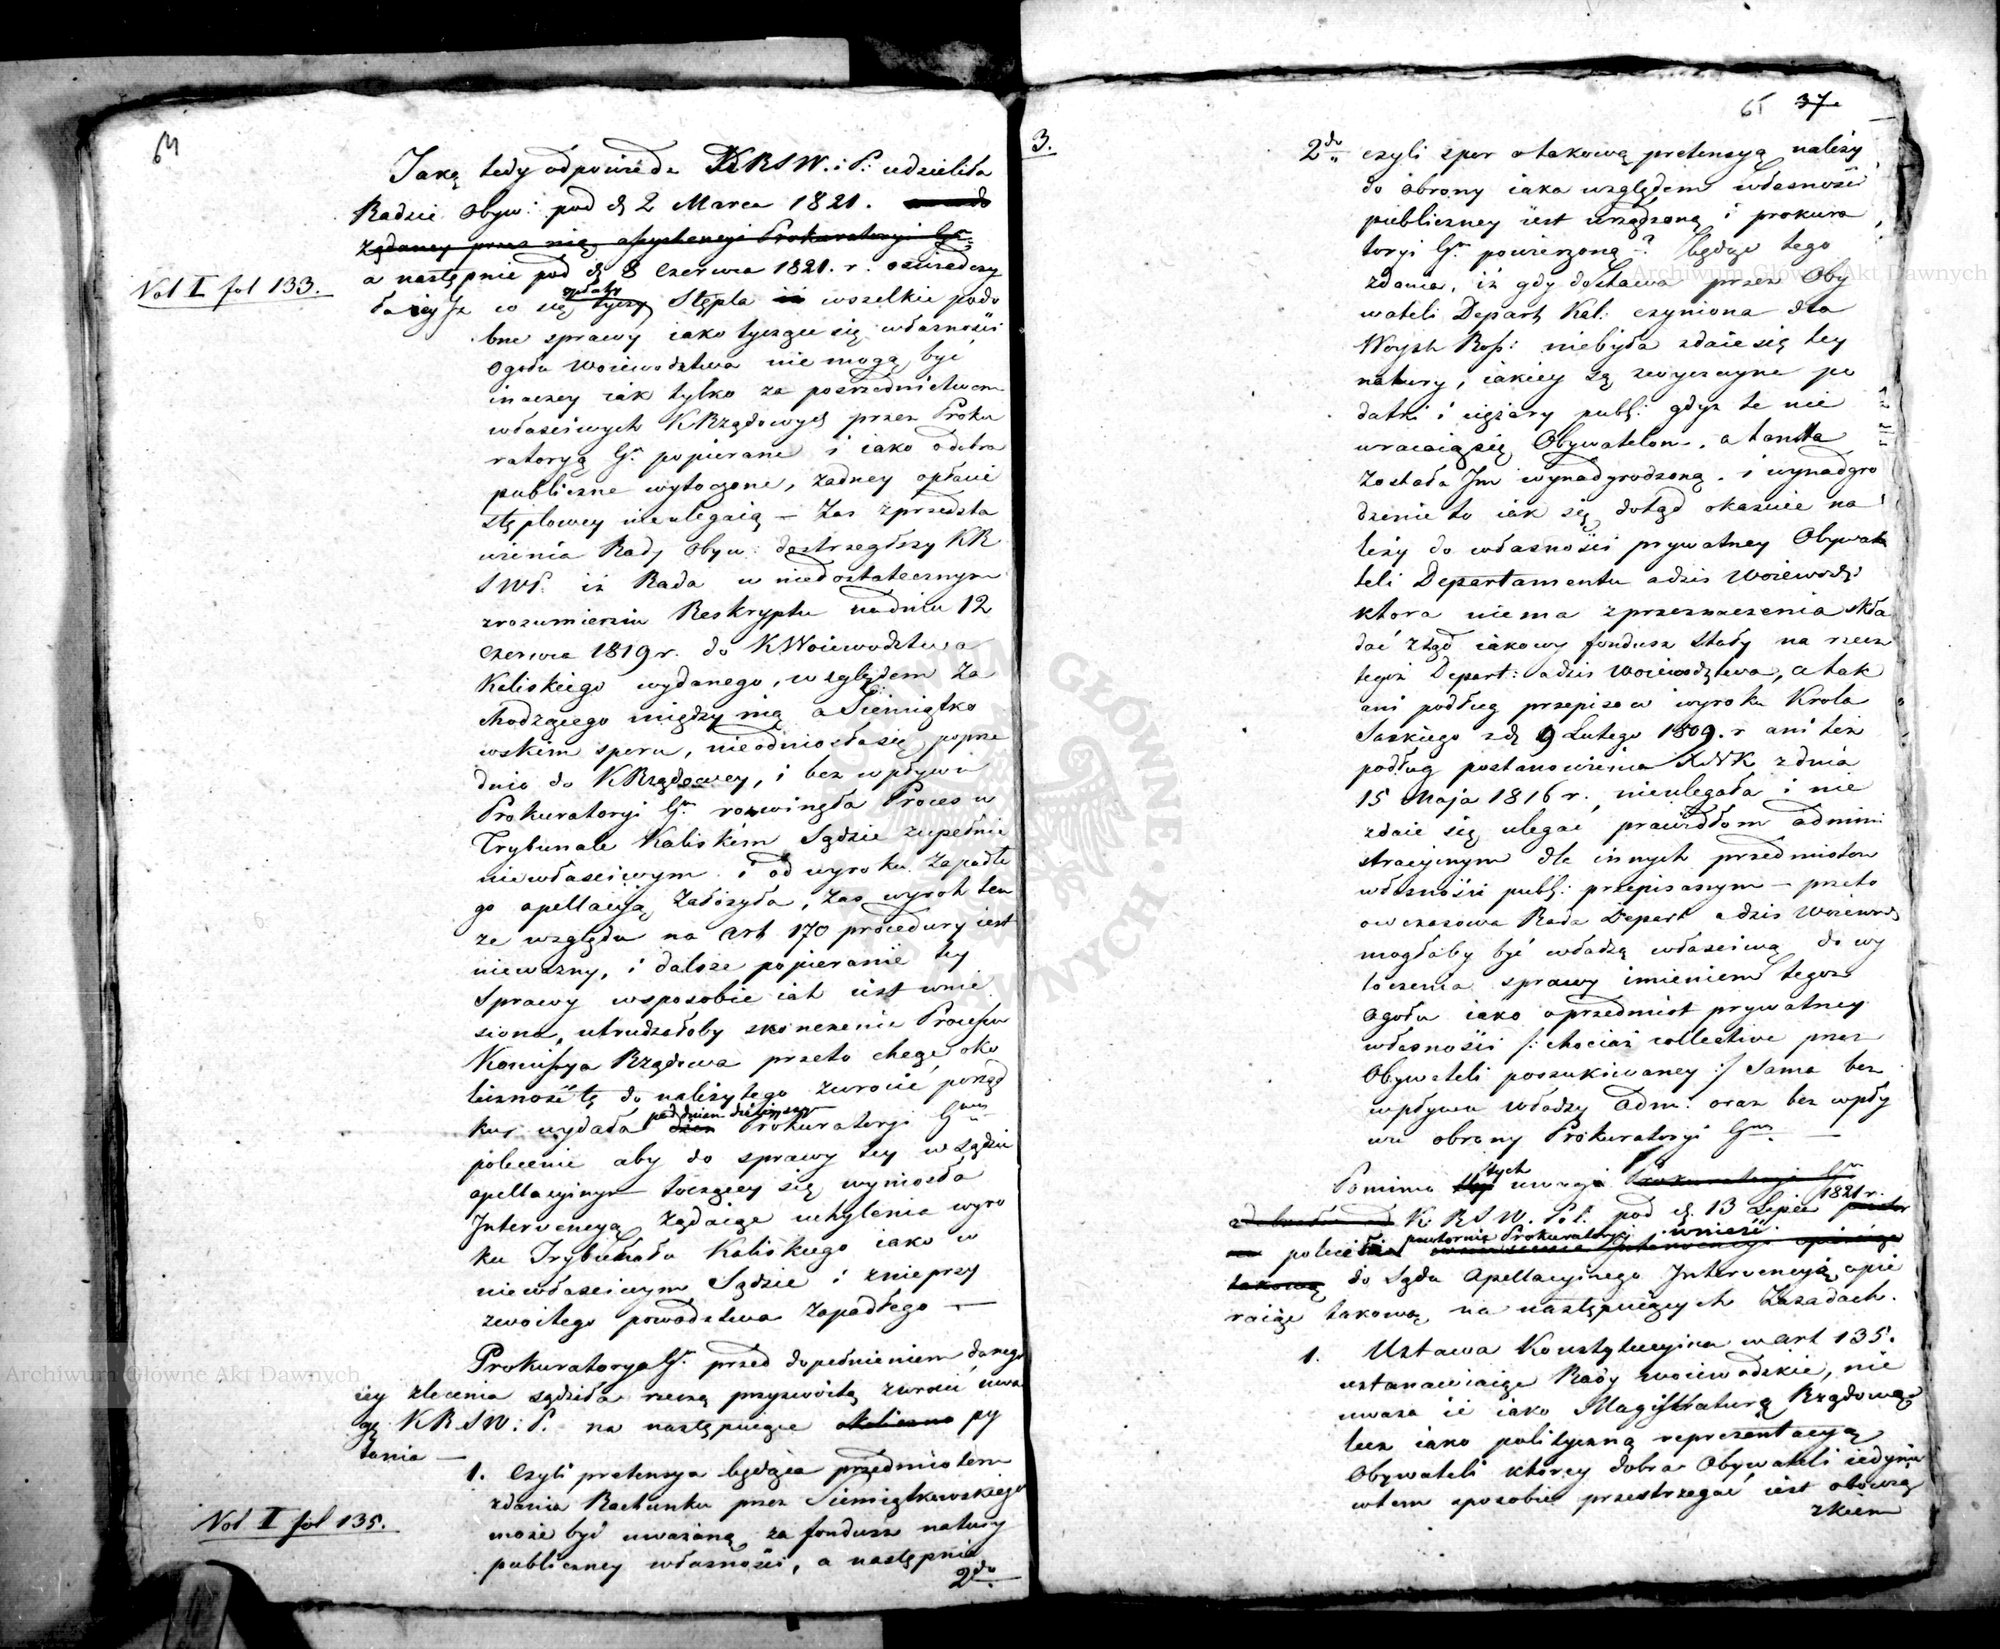 64
Jaką tedy odpowiedz KRSW. i P. udzieliła
Radzie Obyw: pod d 2 Marca 1821.
żądaney przez nię assystencyi Prokuratoryi Gn.
a następnie pod d 8 Czerwca 1821. r. oświadczy
Vol I fol 133.
ła iey Iż co się tyczy opłaty Stępla wszelkie podo
bne sprawy iako tyczące się własności
Ogołu Woiewodztwa nie mogą być
inaczey iak tylko za posrzednictwem
właściwych KRządowych przez Proku
ratoryą Gn. popierane i iako dobra
publiczne wytoczone, żadney opłacie
stęplowey nieulegaią – Zas z przedsta
wienia Rady Obyw: dostrzegłszy KR
SWP. iż Rada w niedostatecznym
zrozumieniu Reskryptu na dniu 12
Czerwca 1819 r. do KWoiewodztwa
Kaliskiego wydanego, względem za
chodzącego między nią a Siemiątko
wskim sporu, nieodniosła się poprze
dnio do KRządowey, i bez wpływu
Prokuratoryi Gn. rozwinęła Proces w
Trybunale Kaliskim Sądzie zupełnie
niewłaściwym i od wyroku zapadłe
go apellacyą założyła, zas wyrok ten
ze względu na art 170 procedury iest
nieważny, i dalsze popieranie tey
Sprawy w sposobie iak iest wnie
siona, utrudzałoby skończenie Processu
Komissya Rządowa przeto chcąc oko
liczność tę do należytego zwrócić porząd
ku, wydała pod dniem dzisieyszym Prokuratoryi Gney
polecenie aby do sprawy tey w Sądzie
apellacyinym toczącey się wyniosła
Interwencyą żądaiąc uchylenia wyro
ku Trybunału Kaliskiego iako w
niewłaściwym Sądzie i z nieprzy
zwoitego powodztwa zapadłego —
Prokuratorya Gn. przed dopełnieniem danego
iey zlecenia sądziła rzeczą przyzwoitą zwrócić uwa
gę KRSW: i P. na następuiące py
tania —
1. Czyli pretensya będąca przedmiotem
zdania Rachunku przez Siemiątkowskiego
Vol II fol 135.
może być uważaną za fundusz natury
publiczney własności, a następnie
2do
3.
65 37
2do czyli spor o takową pretensyą należy
do obrony iaka względem własności
publiczney iest urządzoną i prokura
toryi Gn. powierzoną? Będąc tego
zdania, iż gdy dostawa przez Oby
wateli Depart Kal: czyniona dla
Woysk Ross: niebyła zdaie się tey
natury, iakiey są zwyczayne po
datki i ciężary publ: gdyż te nie
wracaią się Obywatelom, a tamta
została Im wynadgrodzoną i wynadgro
dzenie to iak się dotąd okazuie na
leży do własności prywatney Obywa
teli Departamentu a dzis Woiewodz:
ktora niema z przeznaczenia skła
dać ztąd iakowy fundusz stały na rzecz
tegoż Depart: a dzis Woiewodztwa, a tak
ani podług przepisow wyroku Krola
Saskiego z d 9 Lutego 1809. r ani też
podług postanowienia XNK z dnia
15 Maja 1816 r. nieulegała i nie
zdaie się ulegać prawidłom admini
stracyinym dla innych przedmiotow
własności publ: przepisanym – przeto
owczasowa Rada Depart a dzis Woiewodz
mogłaby być władzą właściwą do wy
toczenia sprawy imieniem tegoż
ogołu iako o przedmiot prywatney
własności /: chociaż collective przez
Obywateli poszukiwaney :/ sama bez
wpływu władzy adm: oraz bez wpły
wu obrony Prokuratoryi Gney —
Pomimo tych uwag Prokuratoryi Gn
K. R. S. W. i P. pod d. 13 Lipca 1821 r.
poleciła powtornie Prokuratoryi wnieść
do Sądu Apellacyinego Interwencyą, opie
raiąc takową na następuiących Zasadach.
1. Ustawa Konstytucyina w art 135.
ustanawiaiąc Rady woiewodzkie, nie
uważa ie iako Magistraturą Rządową
lecz iako polityczną reprezentacyą
Obywateli ktorey dobra Obywateli iedynie
w tem sposobie przestrzegać iest obowią
zkiem